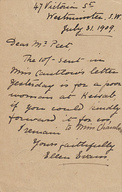 47 Victoria St
Westminster, S.W.
July 31. 1909.
Dear Mr Peet
The 10/- sent in
Miss Caulton's letter
yesterday is for a poor
woman at Kendal
if you could kindly
forward it for
I remain to Miss
Yours faithfully
Ellen Evans